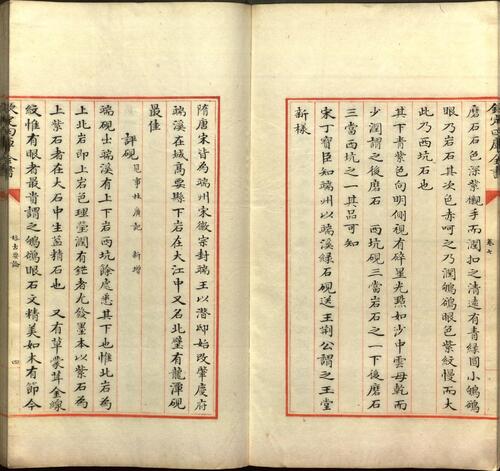 欽定四庫全書
卷七
磨石石色深紫襯手而潤扣之清遠有青綠圓小鸜鵒
眼乃岩石其次色赤呵之乃潤鸜鵒眼色紫紋慢而大
此乃西坑石也
其下青紫色向明側視有碎星光點如沙中雲母乾而
少潤謂之後磨石 西坑硯三當岩石之一下後磨石
三當西坑之一其品可知
宋丁寶臣知端州以端溪綠石硯送王荆公謂之玉堂
新樣
隋唐宋皆為端州宋徽宗封端王以潛邸始改肇慶府
端溪在城高要縣下岩在大江中又名北壁有龍潭硯
最佳
評硯 見事林廣記 新增
端硯出端溪有上下岩西坑餘處悉其下也惟北岩為
上北岩即上岩色理瑩潤有鋩者尤發墨本以紫石為
上紫石者在大石中生蓋精石也 又有草蒙茸金線
紋惟有眼者最貴謂之鸜鵒眼石文精美如木有節今
欽定四庫全書
格古要論
四